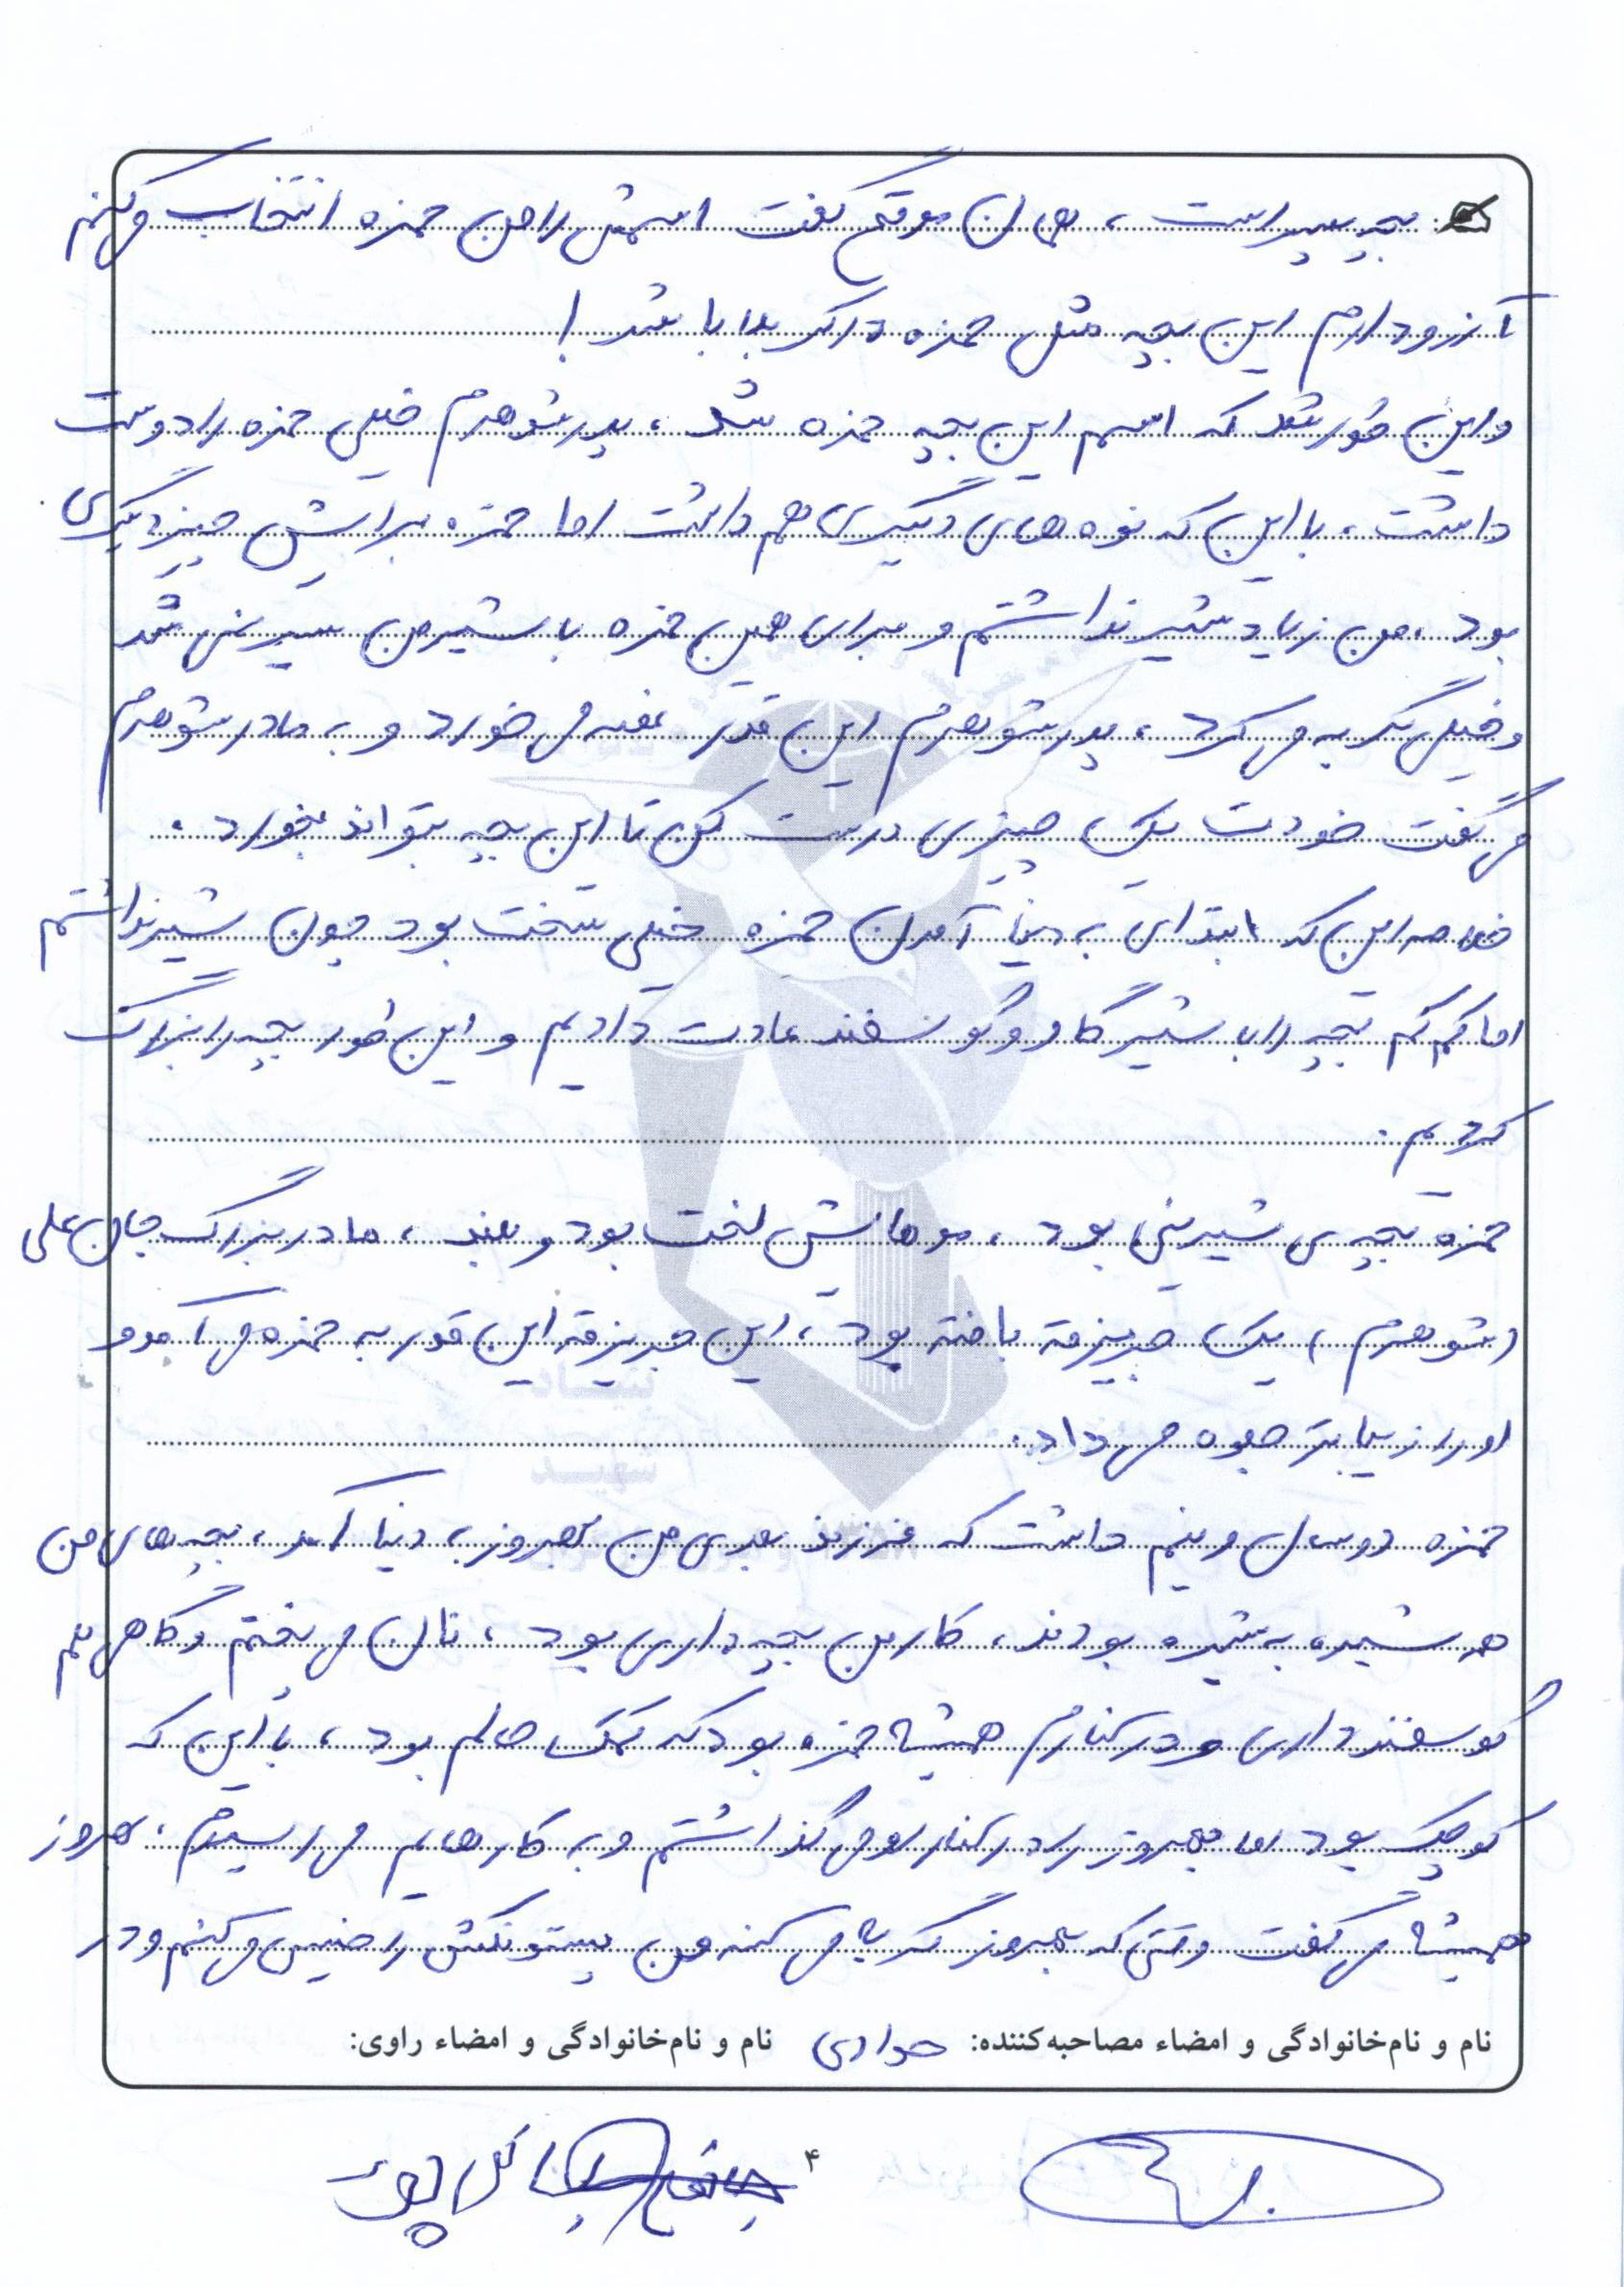 بچه پسر است، همان موقع گفت اسمش را من حمزه انتخاب می‌کنم
آرزو دارم این بچه مثل حمزه در کربلا باشد!
و این طور شد که اسم این بچه حمزه شد، پدرشوهرم خیلی حمزه را دوست
داشت، با این که نوه‌های دیگری هم داشت اما حمزه برایش چیز دیگری
بود، من زیاد شیر نداشتم و برای همین حمزه با شیر من سیر نمی‌شد
و خیلی گریه می‌کرد، پدر شوهرم این قدر غصه می‌خورد و به مادر شوهرم
می‌گفت خودت یک چیزی درست کن تا این بچه بتواند بخورد.
خلاصه این که ابتدای به دنیا آمدن حمزه خیلی سخت بود چون شیر نداشتم
اما کم کم بچه را با شیر گاو و گوسفند عادت دادیم و این طور بچه را بزرگ
کردیم.
حمزه بچه‌ی شیرینی بود، موهایش لخت بود و بلند، مادربزرگ جان علی
(شوهرم) یک جریزقه بافته بود، این جریزقه این قدر به حمزه می‌آمد و
او را زیباتر جلوه می‌داد.
حمزه دو سال و نیم داشت که فرزند بعدی من بهروز به دنیا آمد، بچه‌های من
شیره به شیره بودند، کار من بچه داری بود، نان می‌پختم و گاهی هم
گوسفند داری و در کنارم همیشه حمزه بود که کمک حالم بود، با این که
کوچک بود اما بهروز را در کنار او می‌گذاشتم و به کارهایم می‌رسیدم، بهروز
همیشه می‌گفت وقتی که بهروز گریه می‌کنه من پستونکش را خیس می‌کنم و در
نام و نام‌خانوادگی و امضاء مصاحبه‌کننده: جوادی نام و نام‌خانوادگی و امضاء راوی:
۴